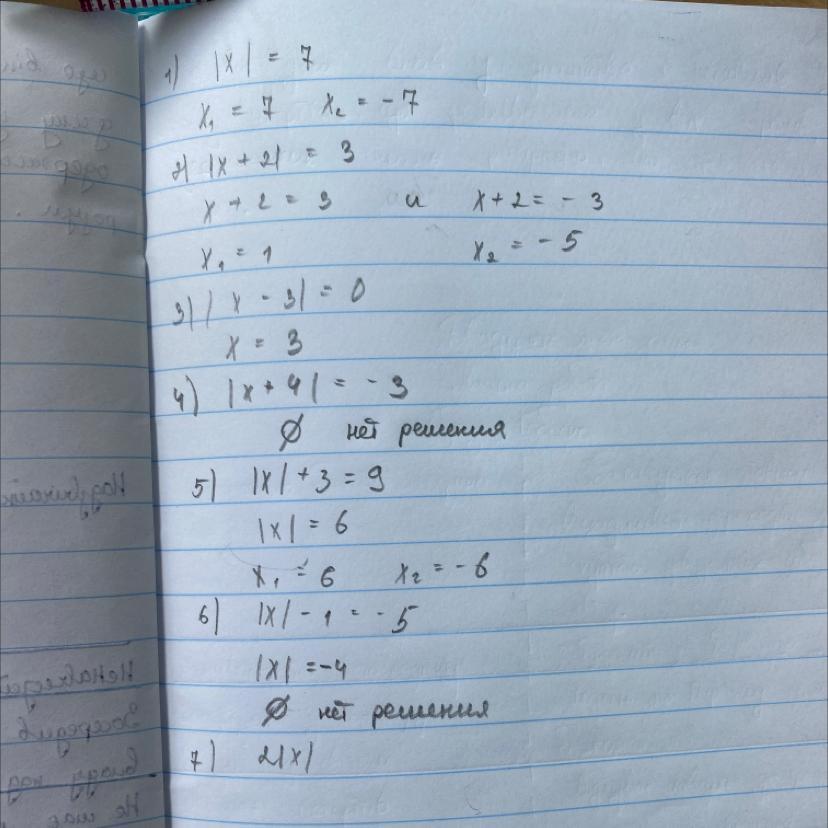 1) |x| = 7
x₁ = 7 x₂ = -7
2) |x + 2| = 3
x + 2 = 3 и x + 2 = - 3
x₁ = 1 x₂ = - 5
3) |x - 3| = 0
x = 3
4) |x + 4| = - 3
∅ нет решения
5) |x| + 3 = 9
|x| = 6
x₁ = 6 x₂ = - 6
6) |x| - 1 = - 5
|x| = -4
∅ нет решения
7) 2|x|